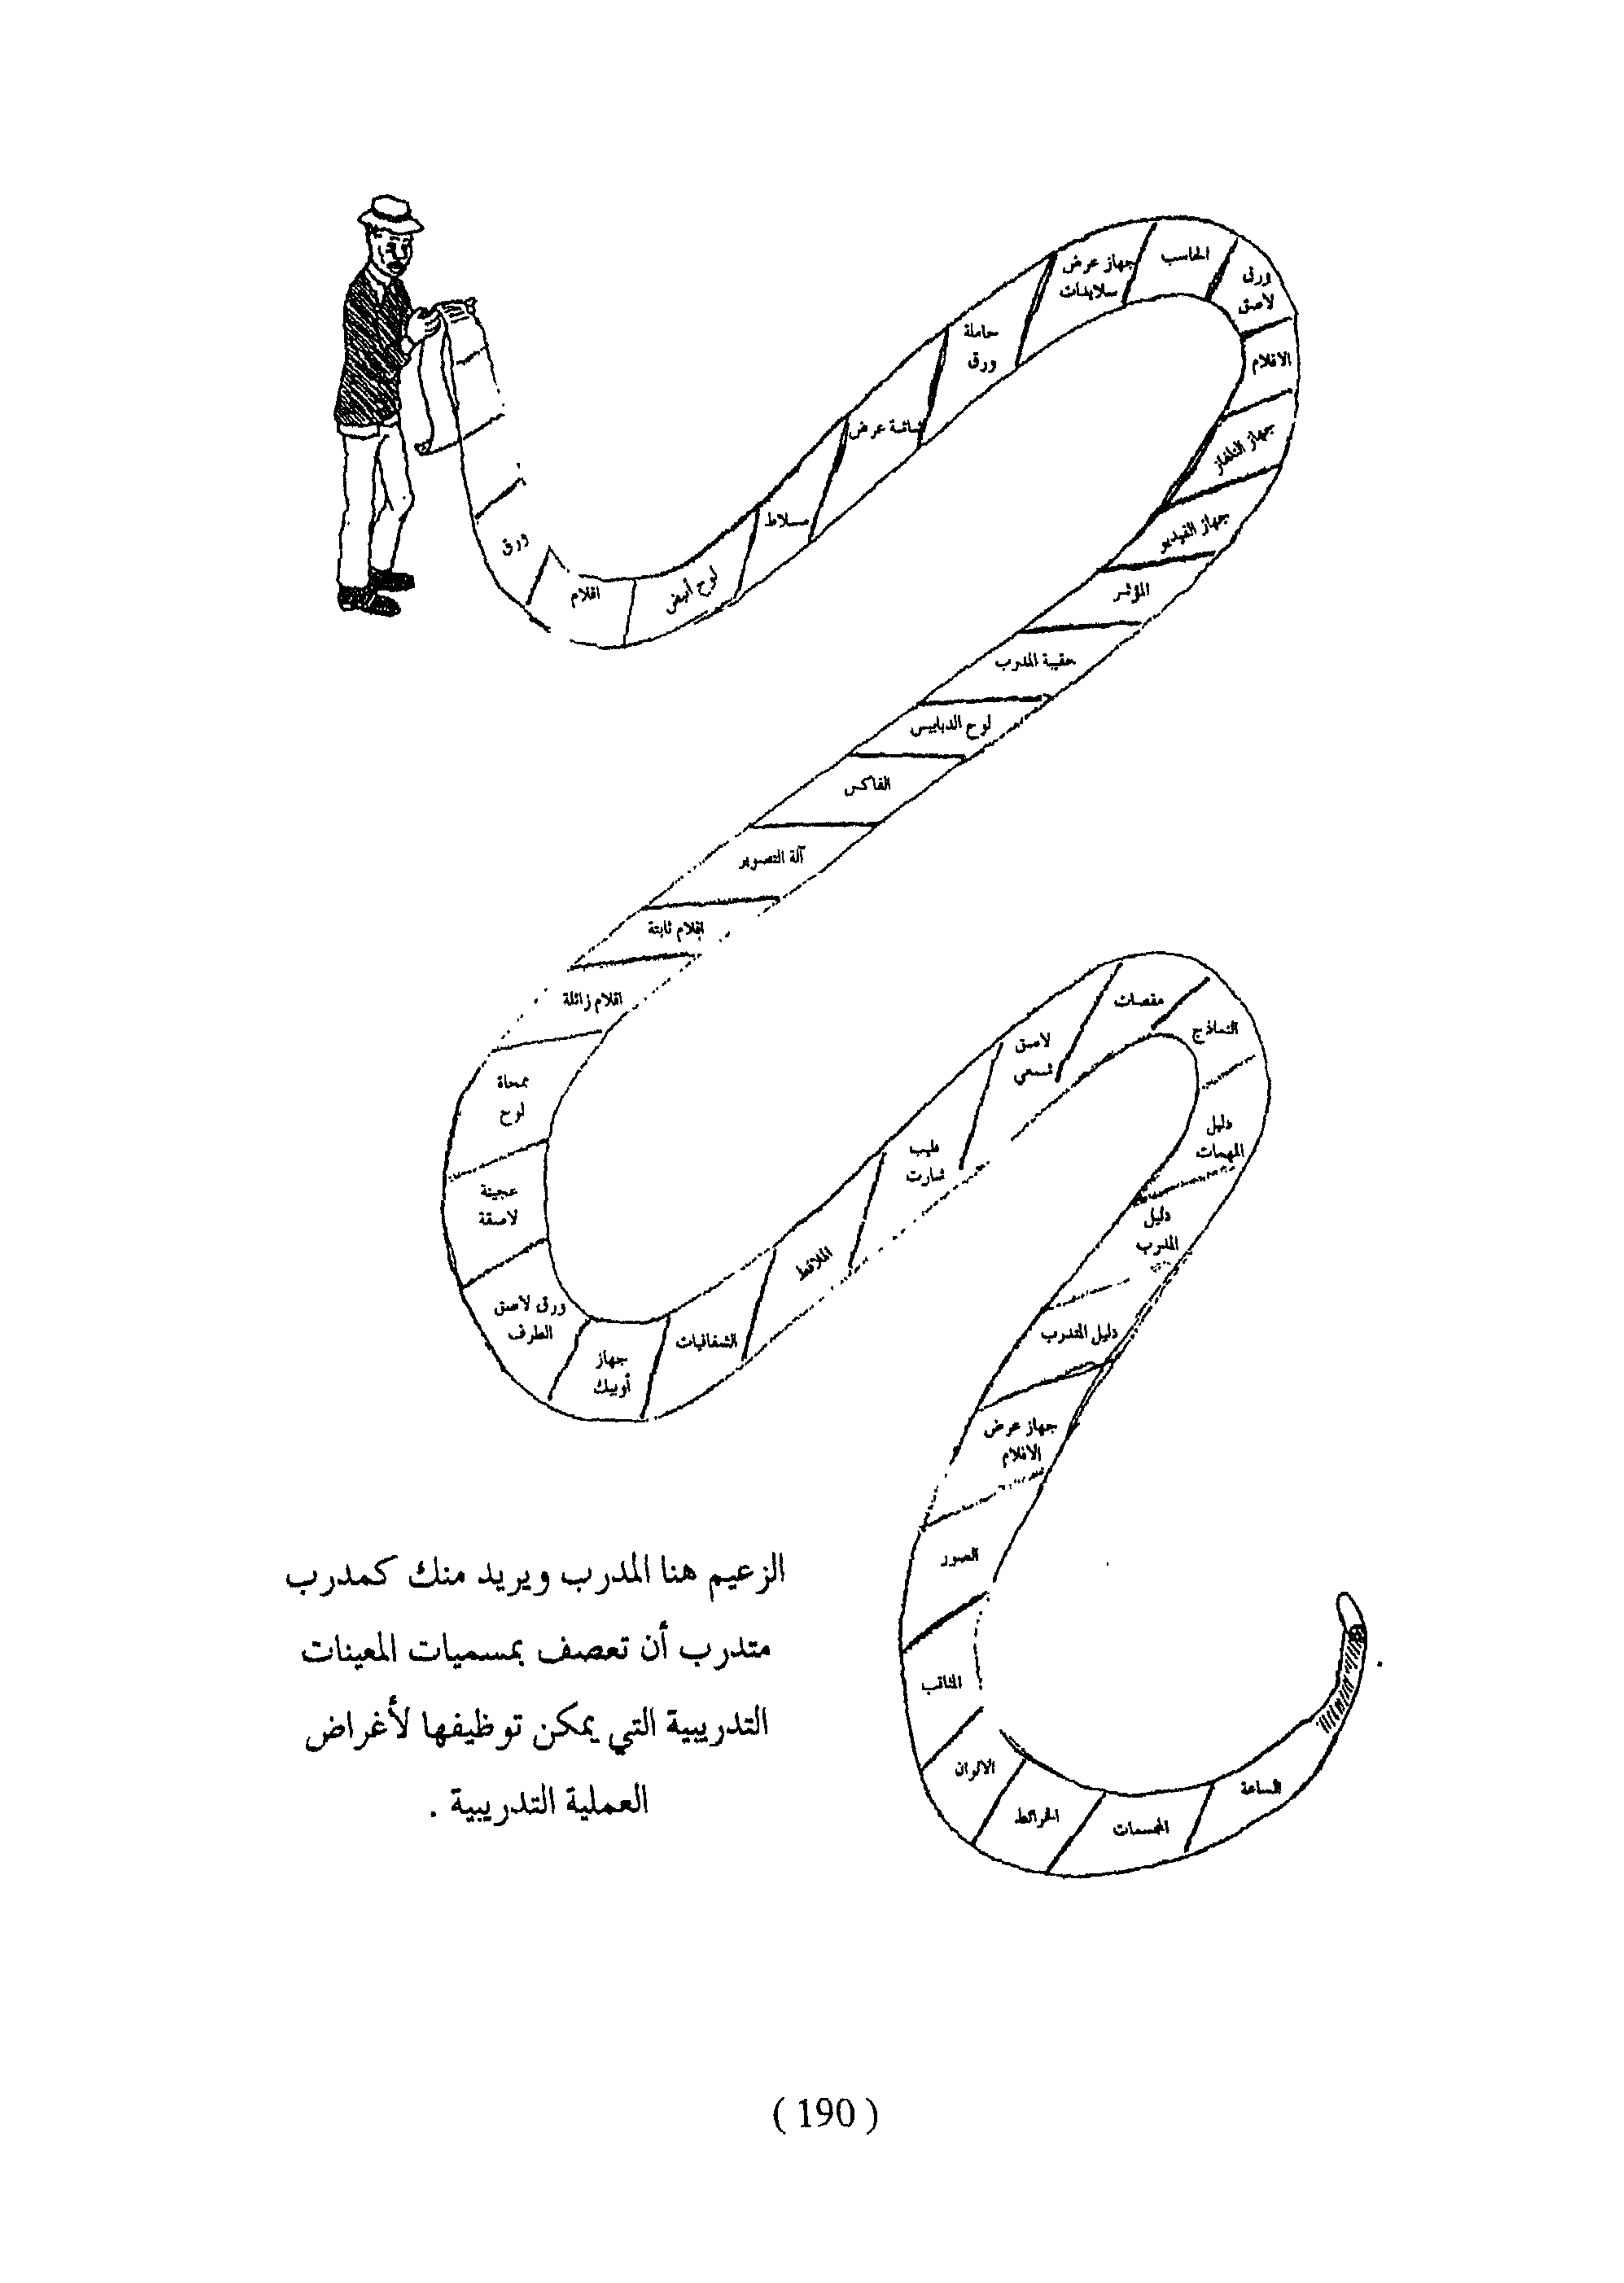 ورق
اقلام
لوح أبيض
مسلاط
شاشة عرض
حاملة
ورق
جهاز عرض
سلايدات
الحاسب
ورق
لاصق
الافلام
جهاز التلفاز
جهاز الفيديو
المؤشر
حقيبة المدرب
لوح الدبابيس
الفاكس
آلة التصوير
اقلام ثابتة
اقلام زائلة
ممحاة
لوح
عجينة
لاصقة
ورق لاصق
الطرف
جهاز
أوبيك
الشفافيات
الملاقط
فليب
شارت
لاصق
شمعي
مقصات
النماذج
دليل
المهمات
دليل
المدرب
دليل المتدرب
جهاز عرض
الافلام
الصور
المثاقب
الالوان
الخرائط
المجسمات
الساعة
الزعيم هنا المدرب ويريد منك كمدرب
متدرب أن تعصف بمسميات المعينات
التدريبية التي يمكن توظيفها لأغراض
العملية التدريبية .
( 190 )